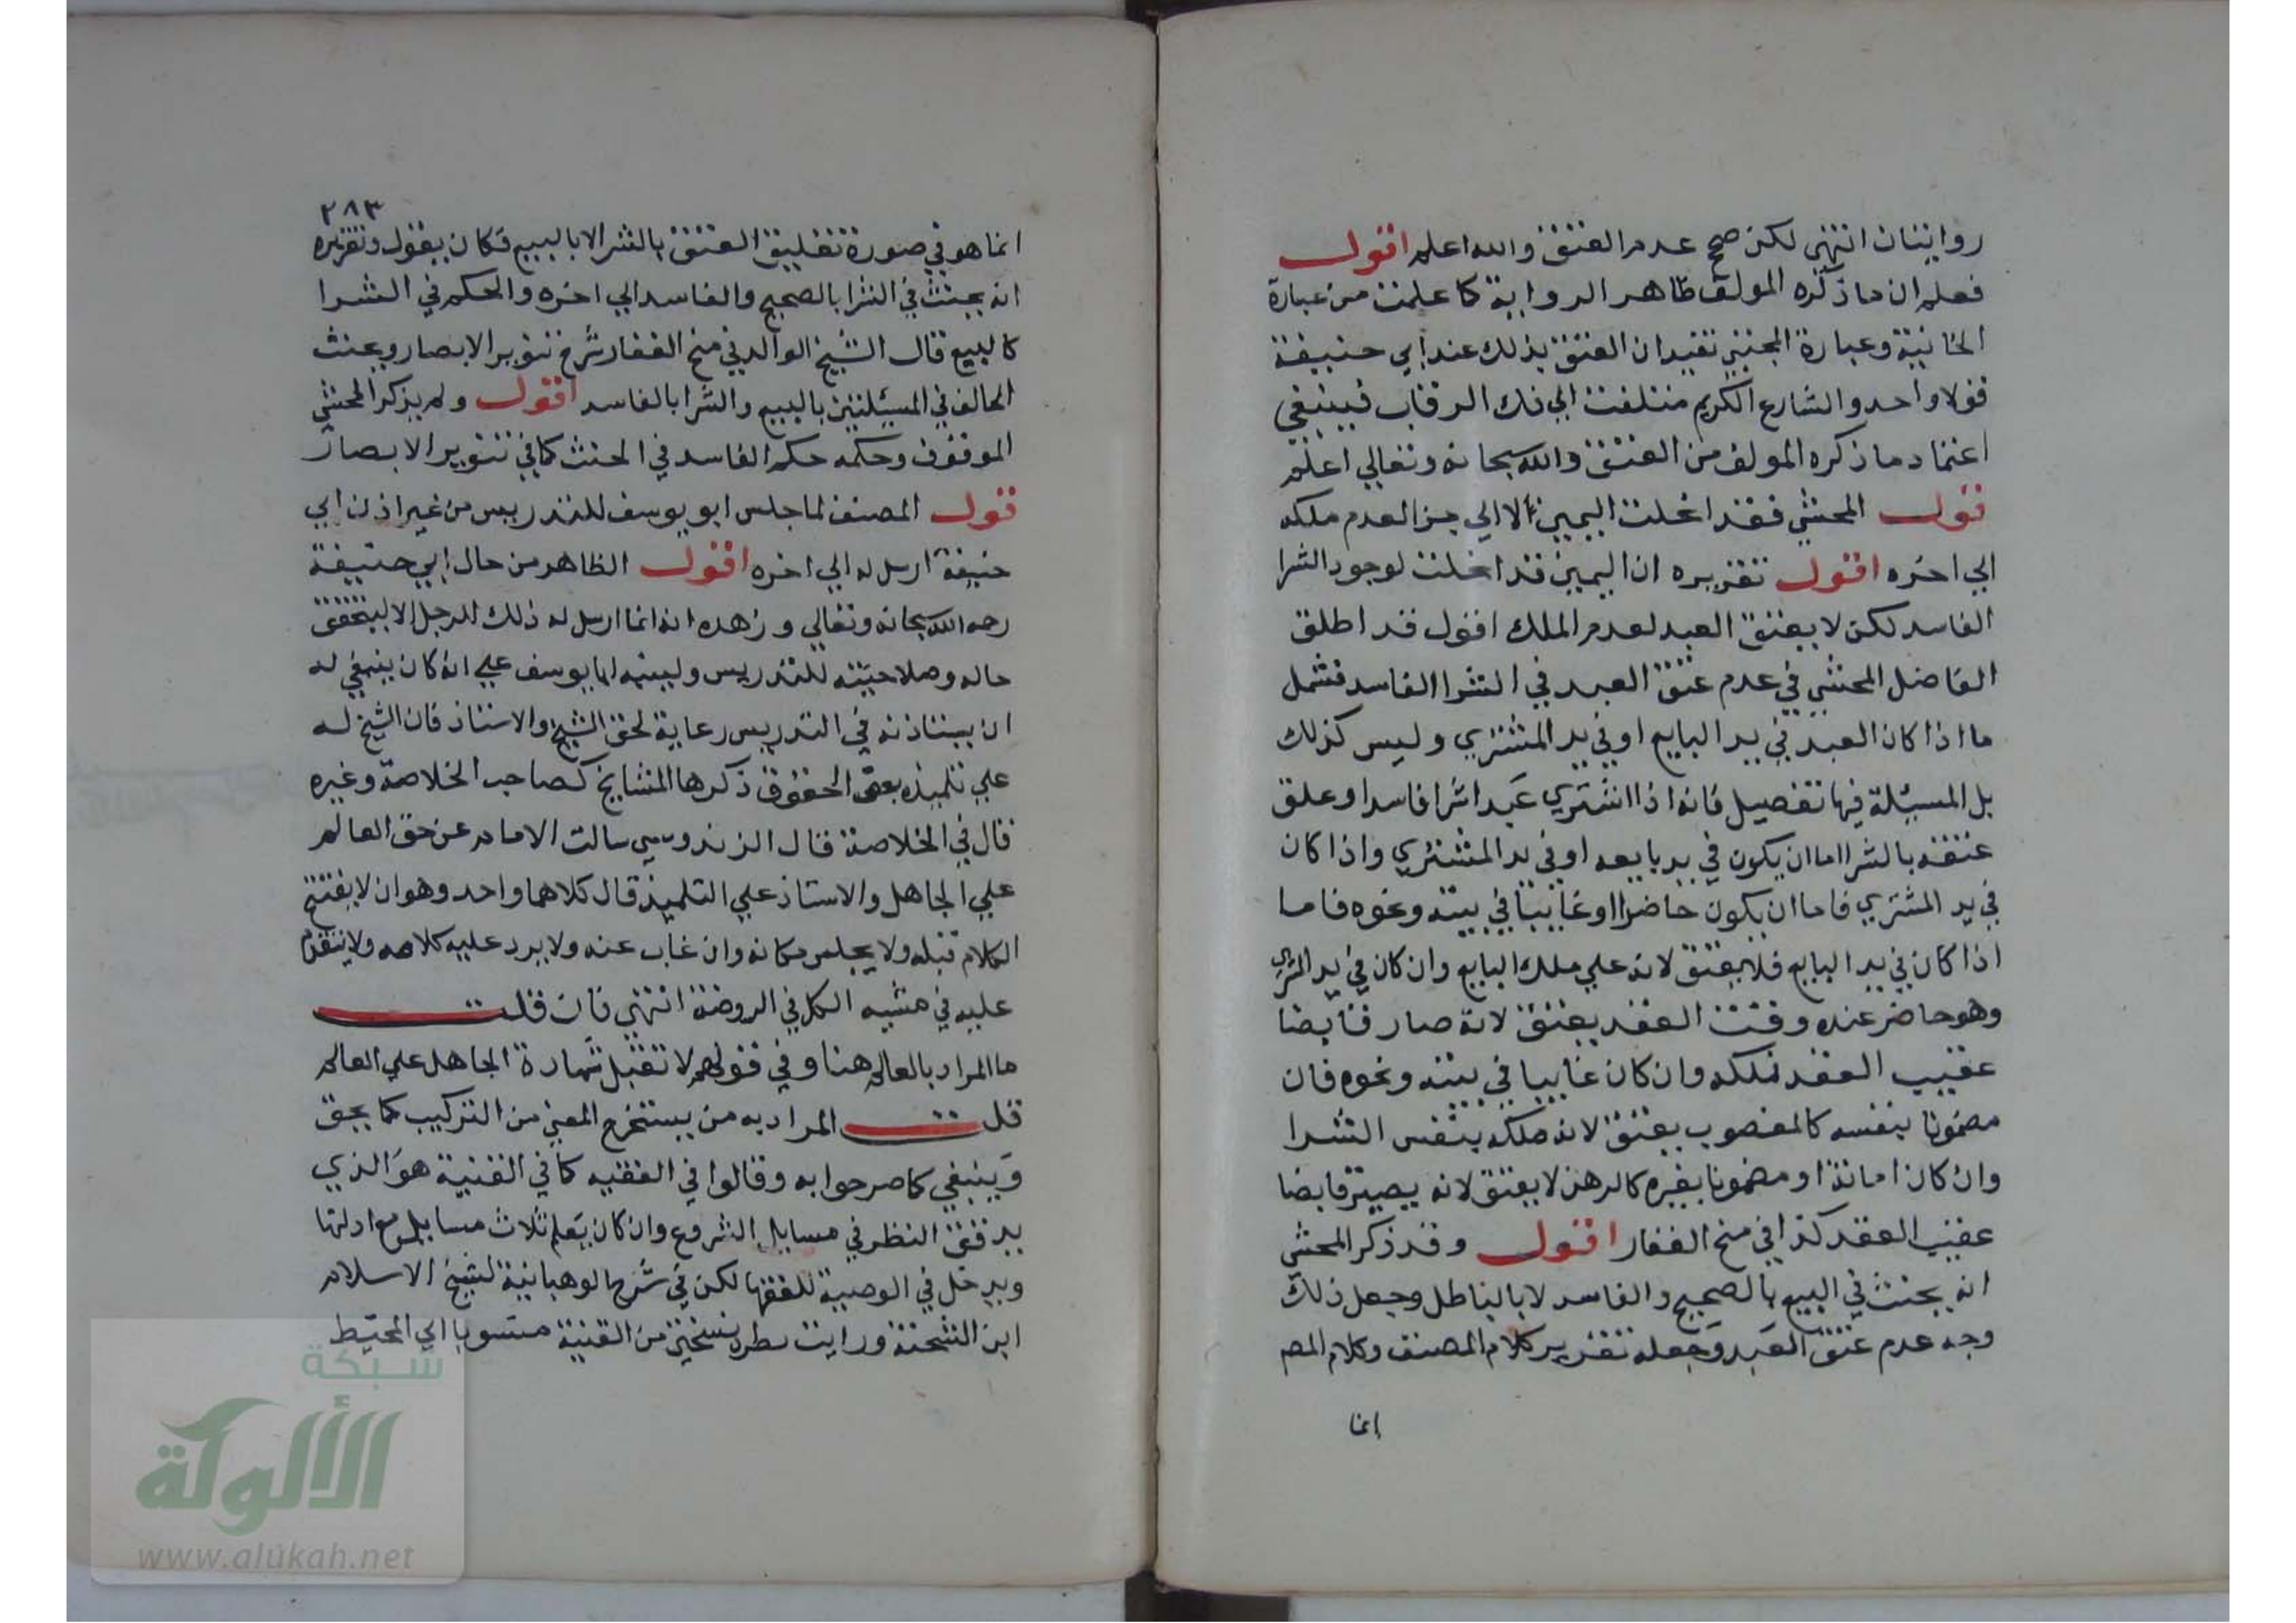 روايتان انتهى لكن صحح عدم العتق والله اعلم اقول
فعلم ان ما ذكره المولف ظاهر الرواية كما علمت من عبارة
الخانية وعبارة المجتبى تفيد ان العتق بذلك عند ابي حنيفة
قولا واحد والشارع الكريم متلفت الي فك الرقاب فينبغي
اعتماد ما ذكره المولف من العتق والله سبحانه وتعالي اعلم
قول المحشي فقد انحلت اليمين لا الي جزا لعدم ملكه
الي اخره اقول تقريره ان اليمين قد انحلت لوجود الشرا
الفاسد لكن لا يعتق العبد لعدم الملك اقول قد اطلق
الفاضل المحشي في عدم عتق العبد في الشرا الفاسد فشمل
ما اذا كان العبد في يد البايع او في يد المشتري وليس كذلك
بل المسئلة فيها تفصيل فانه اذا اشتري عبدا شرا فاسدا وعلق
عتقه بالشرا اما ان يكون في يد بايعه او في يد المشتري واذا كان
في يد المشتري فاما ان يكون حاضرا او غايبا في بيته ونحوه فاما
اذا كان في يد البايع فلا يعتق لانه علي ملك البايع وان كان في يد المشتري
وهو حاضر عنده وقت العقد يعتق لانه صار قابضا
عقيب العقد فملكه وان كان غايبا في بيته ونحوه فان
مضمونا بنفسه كالمغصوب يعتق لانه ملكه بنفس الشرا
وان كان امانة او مضمونا بغيره كالرهن لا يعتق لانه يصير قابضا
عقيب العقد كذا في منح الغفار اقول وقد ذكر المحشي
انه يحنث في البيع بالصحيح والفاسد لا بالباطل وجعل ذلك
وجه عدم عتق العبد وجعله تقرير كلام المصنف وكلام المص
انما
٢٨٣
انما هو في صورة تعليق العتق بالشرا لا بالبيع فكان يقول وتقريره
انه يحنث في الشرا بالصحيح والفاسد الي اخره والحكم في الشرا
كالبيع قال الشيخ الوالد في منح الغفار شرح تنوير الابصار ويحنث
الحالف في المسئلتين بالبيع والشرا بالفاسد اقول ولم يذكر المحشي
الموقوف وحكمه حكم الفاسد في الحنث كما في تنوير الابصار
قول المصنف لما جلس ابو يوسف للتدريس من غير اذن ابي
حنيفة ارسل له الي اخره اقول الظاهر من حال ابي حنيفة
رحمه الله سبحانه وتعالي وزهده انه انما ارسل له ذلك الرجل الا ليتحقق
حاله وصلاحيته للتدريس ولينبه ابا يوسف علي انه كان ينبغي له
ان يستاذنه في التدريس رعاية لحق الشيخ والاستاذ فان الشيخ له
علي تلميذه بعض الحقوق ذكرها المشايخ كصاحب الخلاصة وغيره
قال في الخلاصة قال الزندويسي سالت الامام عن حق العالم
علي الجاهل والاستاذ علي التلميذ قال كلاهما واحد وهو ان لا يفتتح
الكلام قبله ولا يجلس مكانه وان غاب عنه ولا يرد عليه كلامه ولا يتقدم
عليه في مشيه الكل في الروضة انتهي فان قلت
ما المراد بالعالم هنا وفي قولهم لا تقبل شهادة الجاهل علي العالم
قلت المراد به من يستخرج المعني من التركيب كما يحق
وينبغي كما صرحوا به وقالوا في الفقيه كما في القنية هو الذي
يدقق النظر في مسايل الشروع وان كان يعلم ثلاث مسايل مع ادلتها
ويدخل في الوصية للفقها لكن في شرح الوهبانية لشيخ الاسلام
ابن الشحنة ورايت بطرة نسختي من القنية منسوبا الي المحيط
شبكة
الألوكة
www.alukah.net